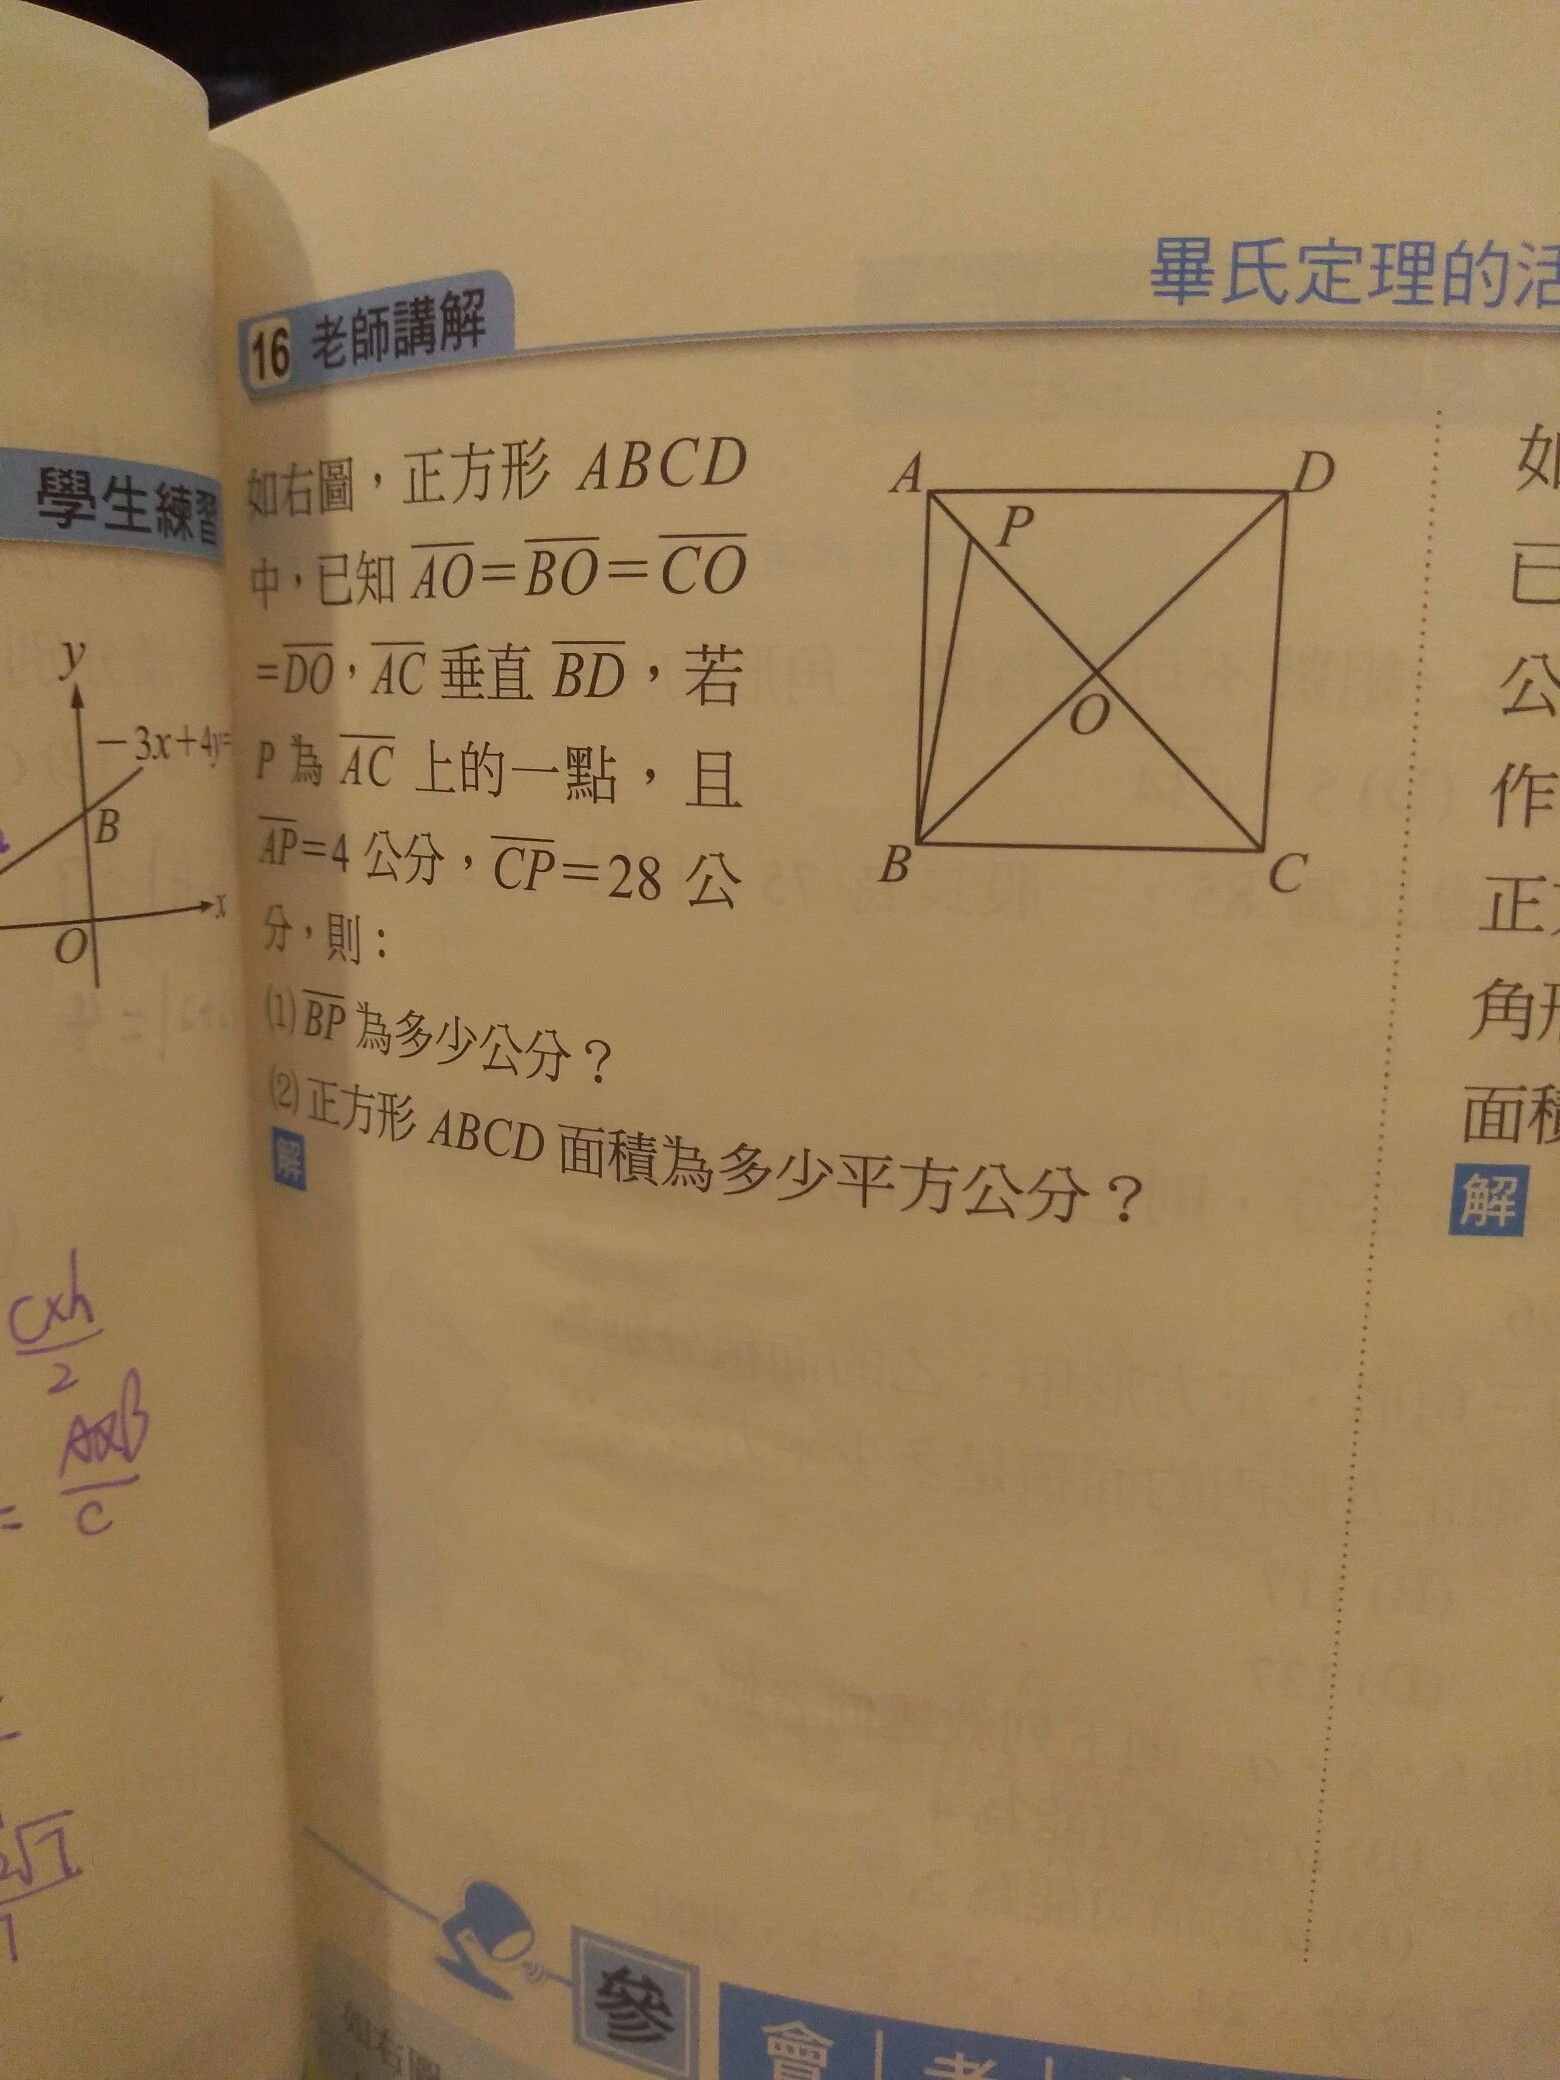 學生練習
y
－3x＋4y=
B
x
O
C×h
2
A×B
=
C
畢氏定理的活
16 老師講解
如右圖，正方形 ABCD
中，已知 AO=BO=CO
=DO，AC 垂直 BD，若
P 為 AC 上的一點，且
AP=4 公分，CP=28 公
分，則：
(1) BP 為多少公分？
(2) 正方形 ABCD 面積為多少平方公分？
解
A
D
P
O
B
C
如
已
公
作
正方
角形
面積
解
參
會
考
如右圖